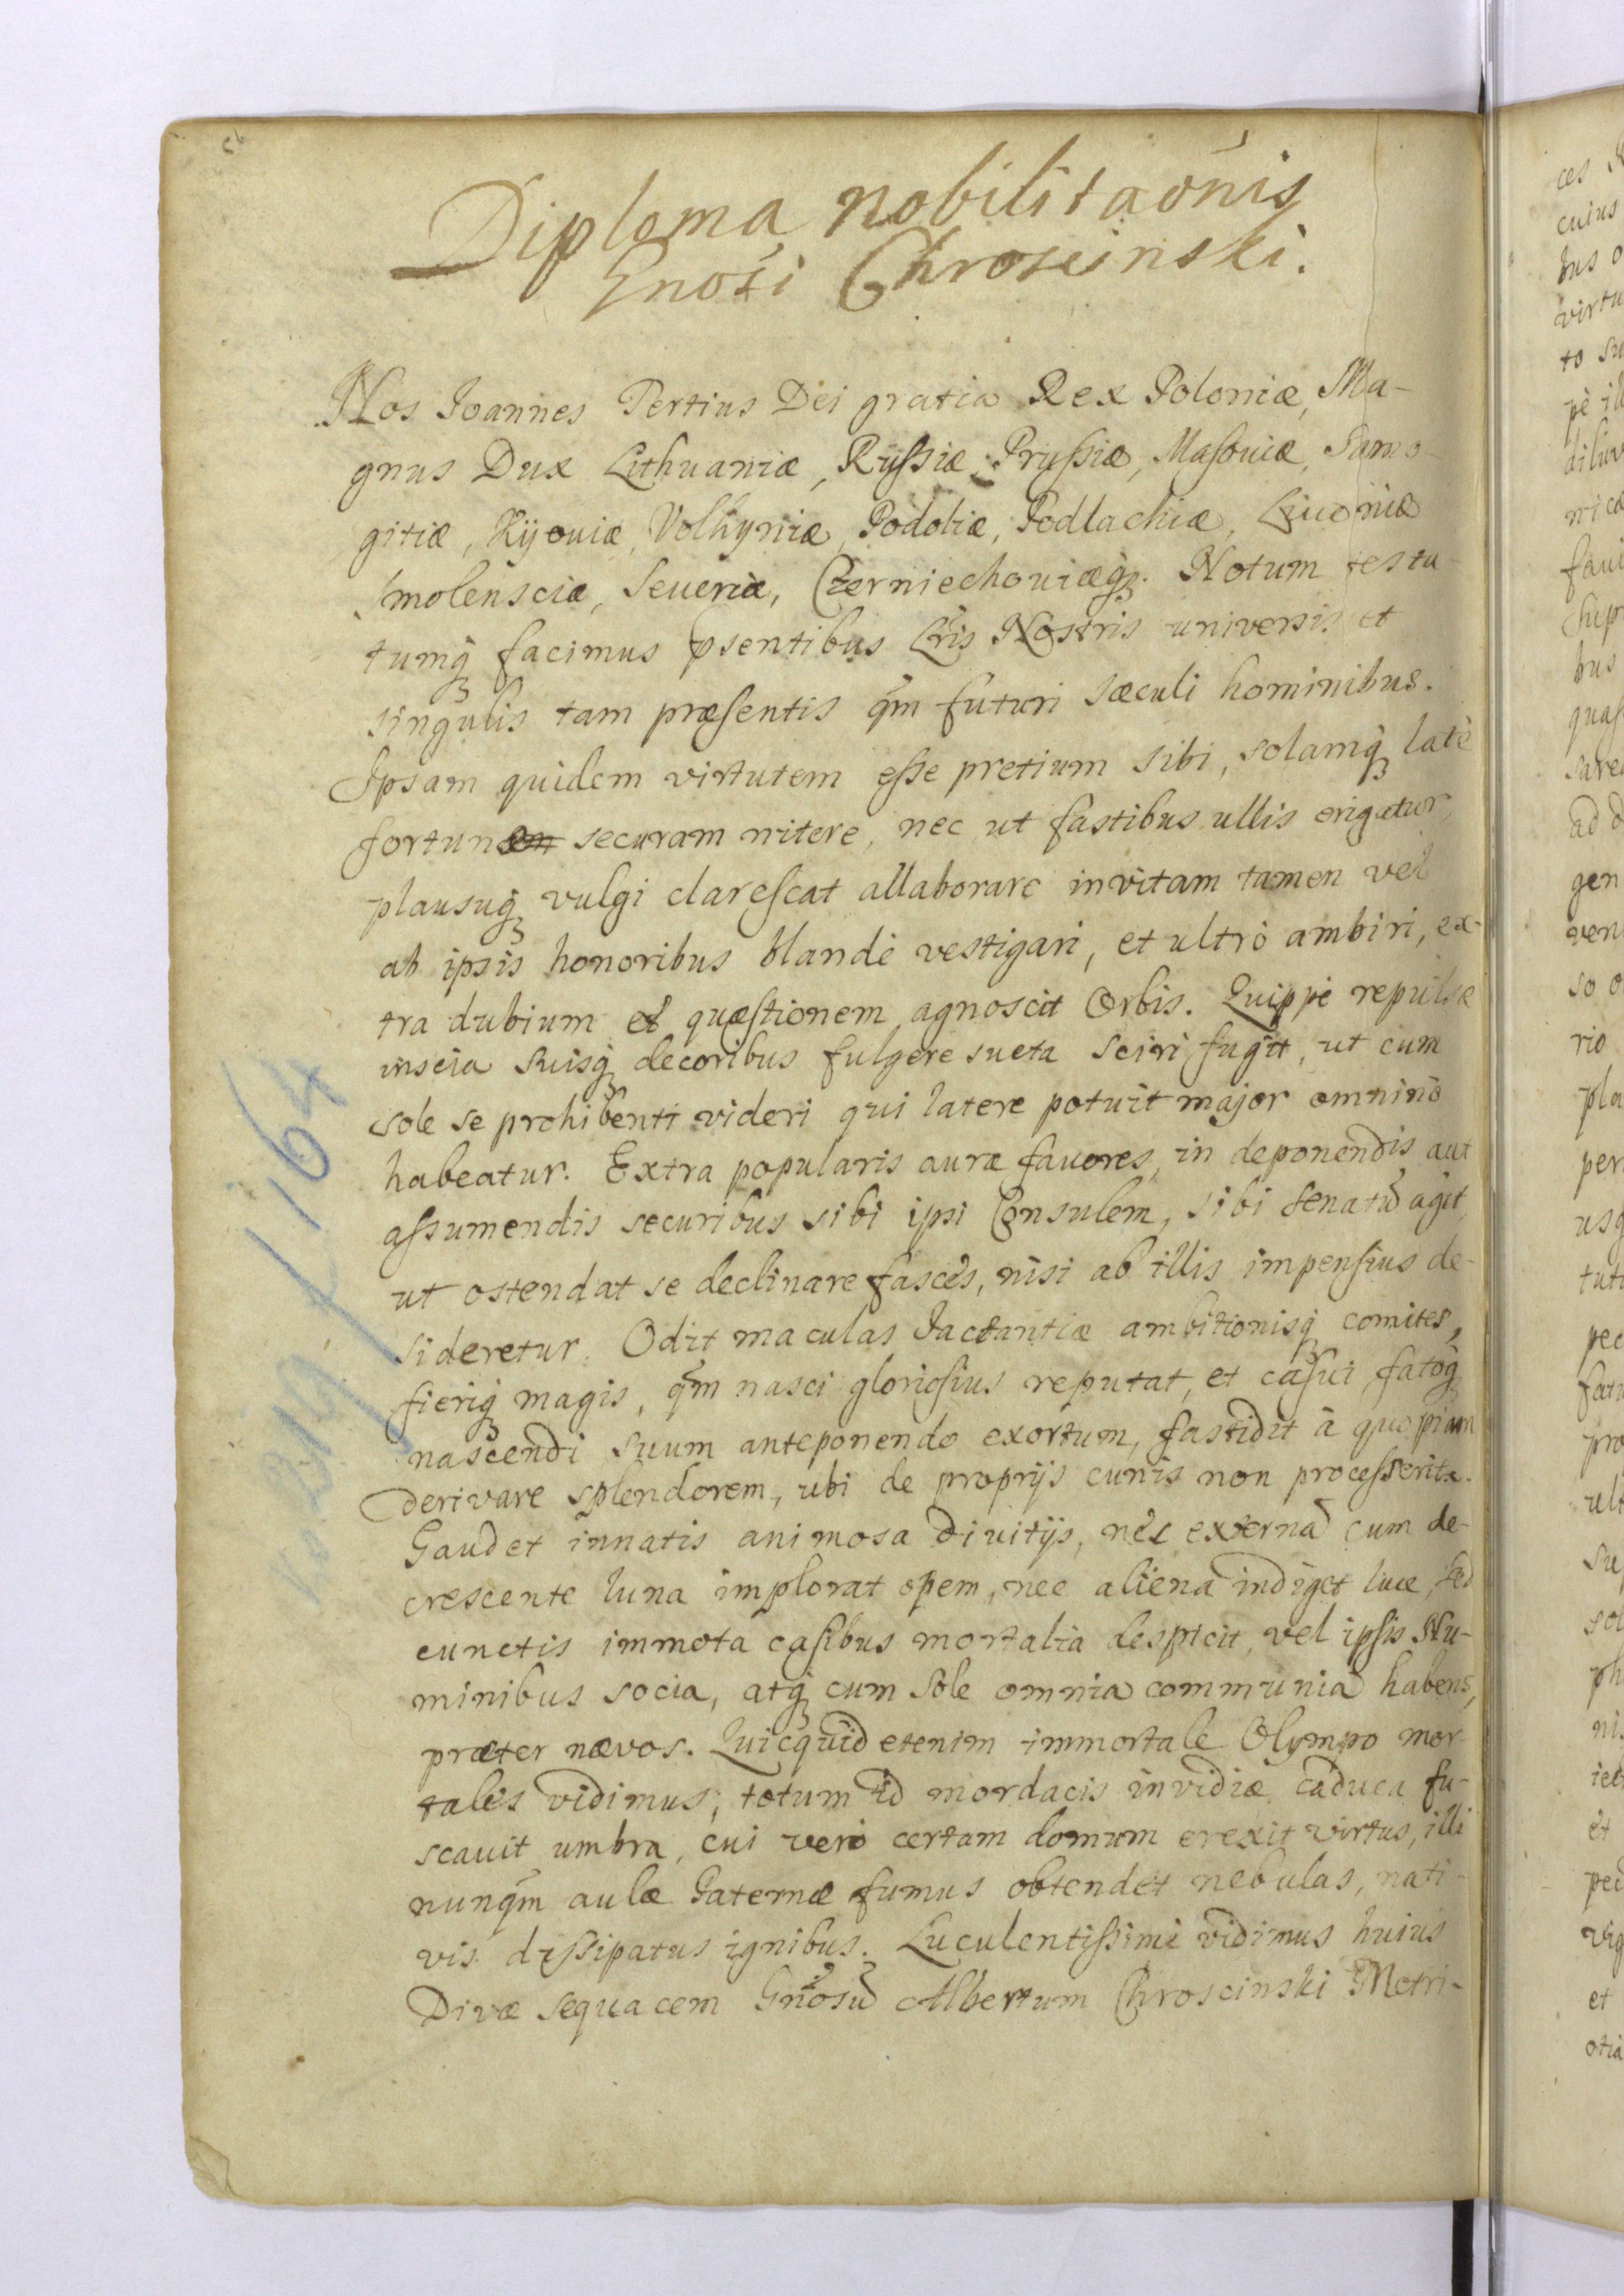 Diploma nobilitaōnis
Gnosi Chroscinski.
Nos Joannes Tertius Dei gratia Rex Poloniæ, Ma-
gnus Dux Lithuaniæ, Rußiæ, Prußiæ, Masoviæ, Samo-
gitiæ, Kijoviæ, Volhyniæ, Podoliæ, Podlachiæ, Livoniæ
Smolensciæ, Severiæ, Czerniechoviæq;. Notum testa-
tumq; facimus pſentibus Lris Nostris universis et
singulis tam præsentis qm̃ futuri sæculi hominibus.
Ipsam quidem virtutem eße pretium sibi, solamq; latè
fortunæ securam nitere, nec ut fastibus ullis erigatur,
plausuq; vulgi clarescat allaborare invitam tamen vel
ab ipsis honoribus blandè vestigari, et ultrò ambiri, ex-
tra dubium et quæstionem agnoscit Orbis. Quippè repulsæ
inscia suisq; decoribus fulgere sueta sciri fugit, ut cum
sole se prohibenti videri qui latere potuit major omninò
habeatur. Extra popularis auræ favores, in deponendis aut
aßumendis securibus sibi ipsi Consulem, sibi senatũ agit,
ut ostendat se declinare fasces, nisi ab illis impensius de-
sideretur. Odit maculas Jactantiæ ambitionisq; comites,
fieriq; magis, qm̃ nasci gloriosius reputat, et casui fatoq;
nascendi suum anteponendo exortum, fastidit à quopiam
derivare splendorem, ubi de proprijs cunis non proceßerit.
Gaudet innatis animosa divitijs, nec externã cum de-
crescente luna implorat opem, nec aliena indiget luce, sed
cunctis immota casibus mortalia despicit, vel ipsis Nu-
minibus socia, atq; cum sole omnia communia habens,
præter nævos. Quicquid etenim immortale Olympo mor-
tales vidimus, totum id mordacis invidiæ caduca fu-
scavit umbra, cui verò certam domum erexit virtus, illi
nunqm̃ aulæ Paternæ fumus obtendet nebulas, nati-
vis dißipatus ignibus. Luculentißimè vidimus huius
Divæ sequacem Gnosũ Albertum Chroscinski Metri-